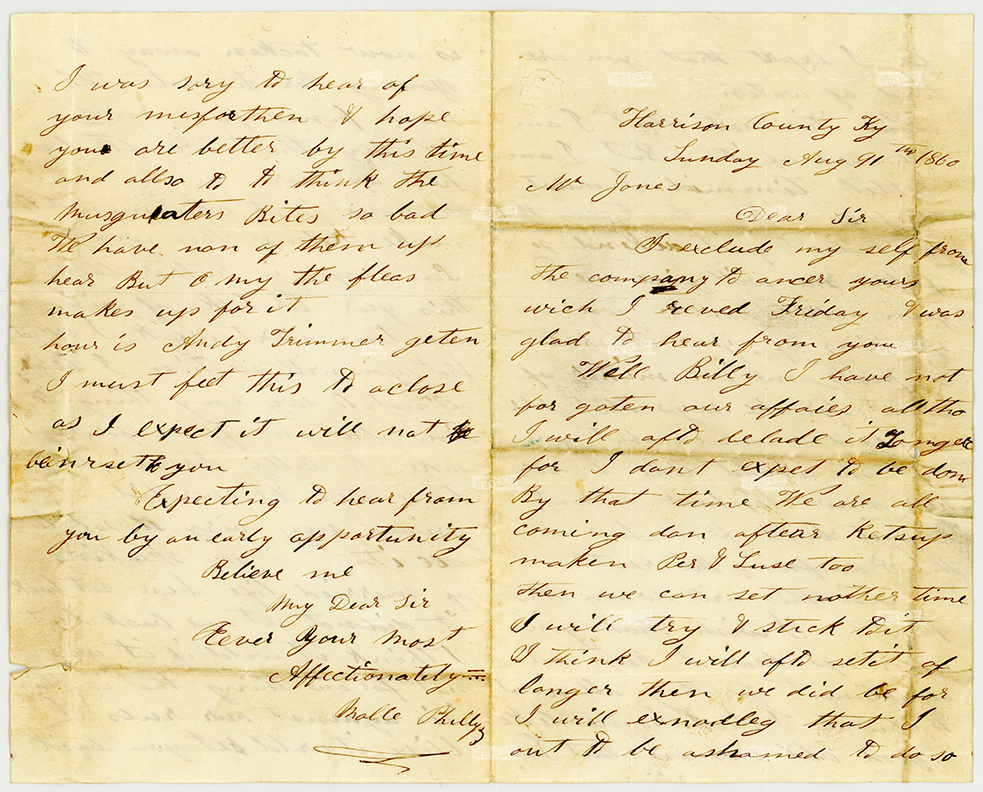 Harrison County Ky
Sunday Aug 1860
Mr Jones
Dear Sir
I exclude my self from
the company to ancer yours
wich I reved Friday & was
glad to hear from you
Well Billy I have not
for goten our affaies alltho
I will afto delade it longer
for I dont expet to be don
By that time We are all
coming don aftear Ketsup
maken Per & Luse too
then we can set nother time
I will try & stick to it
I think I will afto set it of
longer then we did be for
I will exnodleg that I
out to be ashamed to do so
I was sory to hear of
your misforthen & hope
you are better by this time
and allso to to think the
Musqueaters Bites so bad
We have non of them up
hear But O my the fleas
makes up for it
hour is Andy Trimmer geten
I must fet this to a close
as I expect it will not
you
Expecting to hear from
you by an early opportunity
Believe me
My Dear Sir
Eever Your Most
Affectionately
Phillips